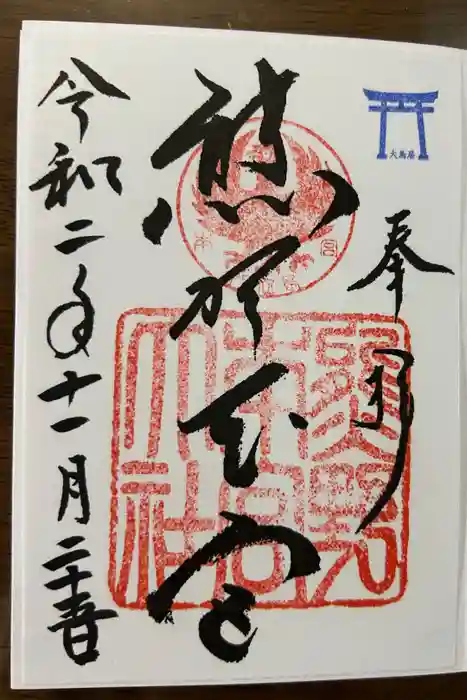 大鳥居
奉拝
熊野本宮
熊野
本宮
大社
令和二年十一月二十